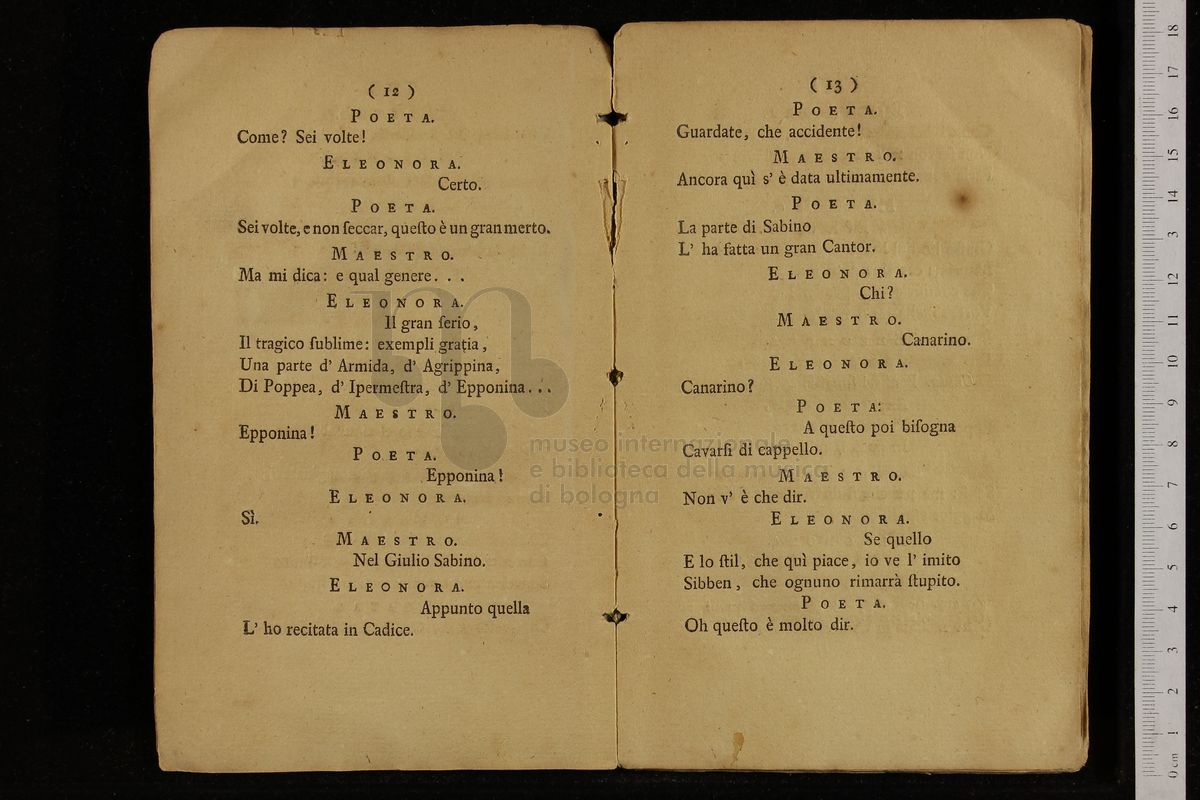 ( 12 )
POETA.
Come? Sei volte!
ELEONORA.
Certo.
POETA.
Sei volte, e non ſeccar, queſto è un gran merto.
MAESTRO.
Ma mi dica: e qual genere. . .
ELEONORA.
Il gran ſerio,
Il tragico ſublime: exempli gratia,
Una parte d' Armida, d' Agrippina,
Di Poppea, d' Ipermeſtra, d' Epponina. . .
MAESTRO.
Epponina!
POETA.
Epponina!
ELEONORA.
Sì.
MAESTRO.
Nel Giulio Sabino.
ELEONORA.
Appunto quella
L' ho recitata in Cadice.
( 13 )
POETA.
Guardate, che accidente!
MAESTRO.
Ancora quì s' è data ultimamente.
POETA.
La parte di Sabino
L' ha fatta un gran Cantor.
ELEONORA.
Chi?
MAESTRO.
Canarino.
ELEONORA.
Canarino?
POETA:
A queſto poi biſogna
Cavarſi di cappello.
MAESTRO.
Non v' è che dir.
ELEONORA.
Se quello
E lo ſtil, che quì piace, io ve l' imito
Sibben, che ognuno rimarrà ſtupito.
POETA.
Oh queſto è molto dir.
museo internazionale
e biblioteca della musica
di bologna
0 cm 1 2 3 4 5 6 7 8 9 10 11 12 13 14 15 16 17 18